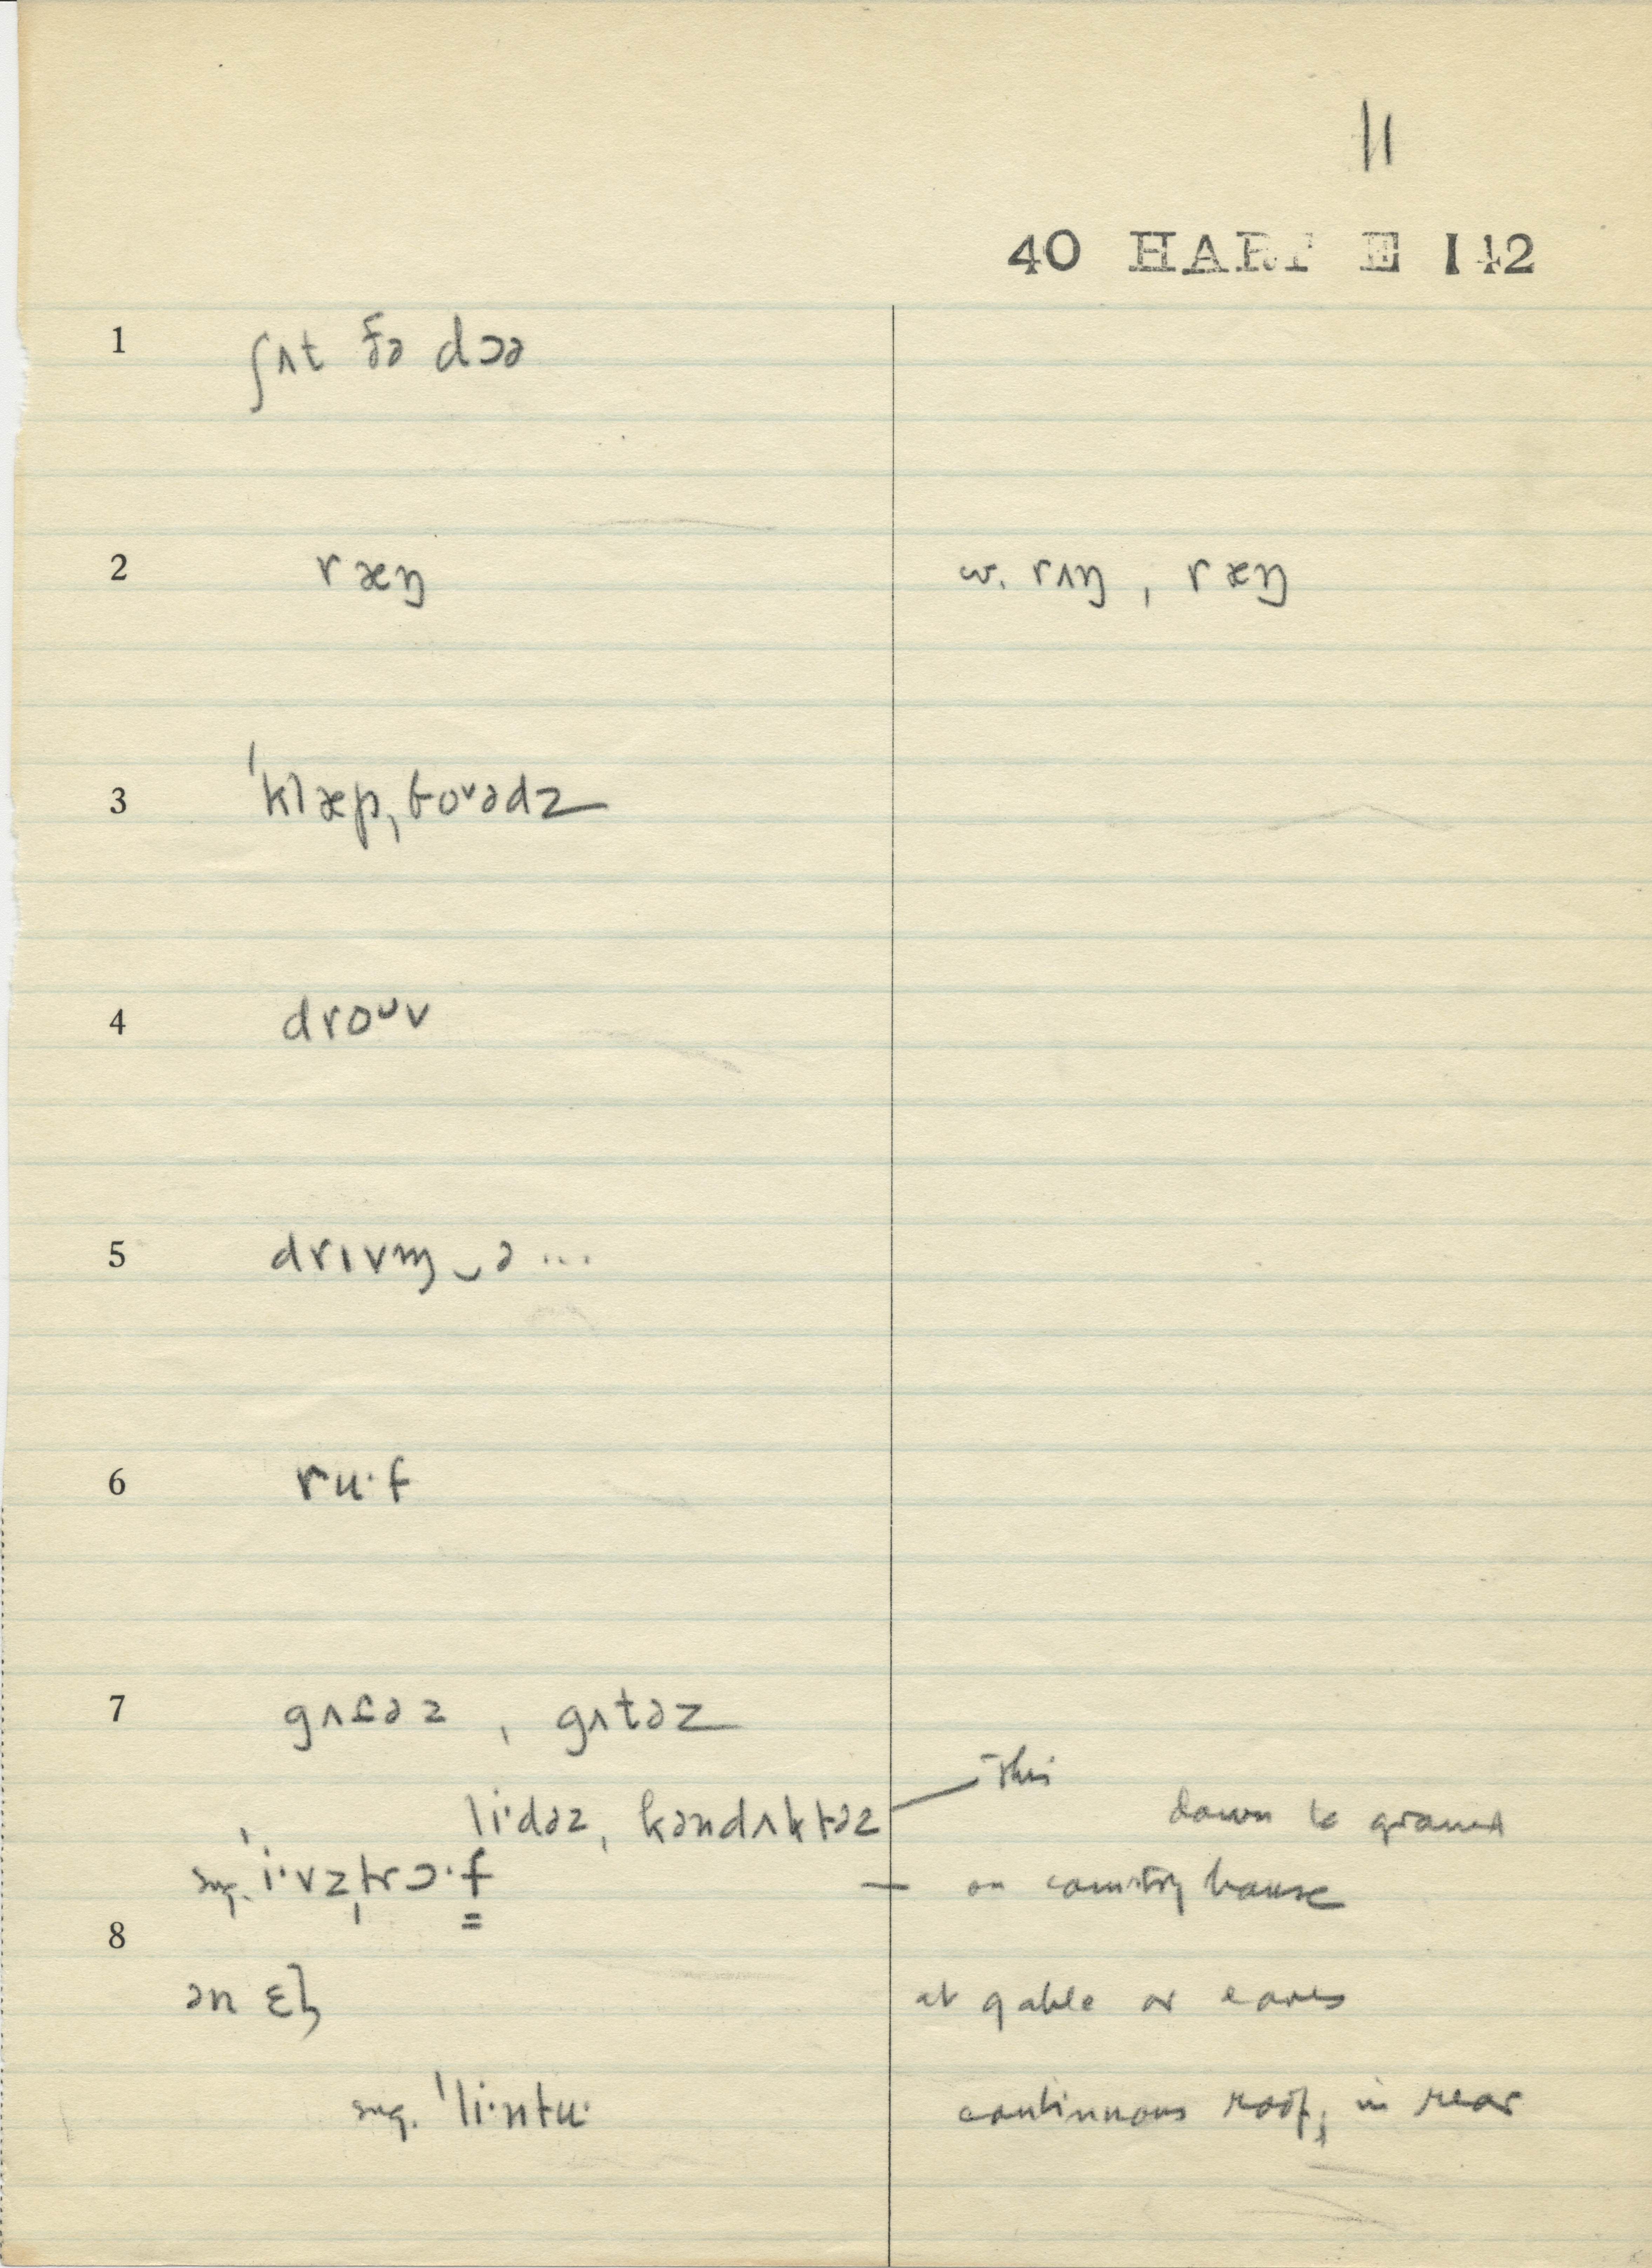 11
40 HART E 142
1 ʃʌt ðə dɔə
2 ræŋ w. rʌŋ, ræŋ
3 ˈklæpˌboᵛədz
4 droᵘv
5 drɪvɪŋ‿ə ...
6 ru·f
7 gʌt̬əz, gʌtəz
li·dəz, kəndʌktəz — this down to ground
sug. ˈi·vzˌtrɔ·f — on country house
8
ən ɛl̩ at gable or eaves
sug. ˈli·ntu· continuous roof; in rear